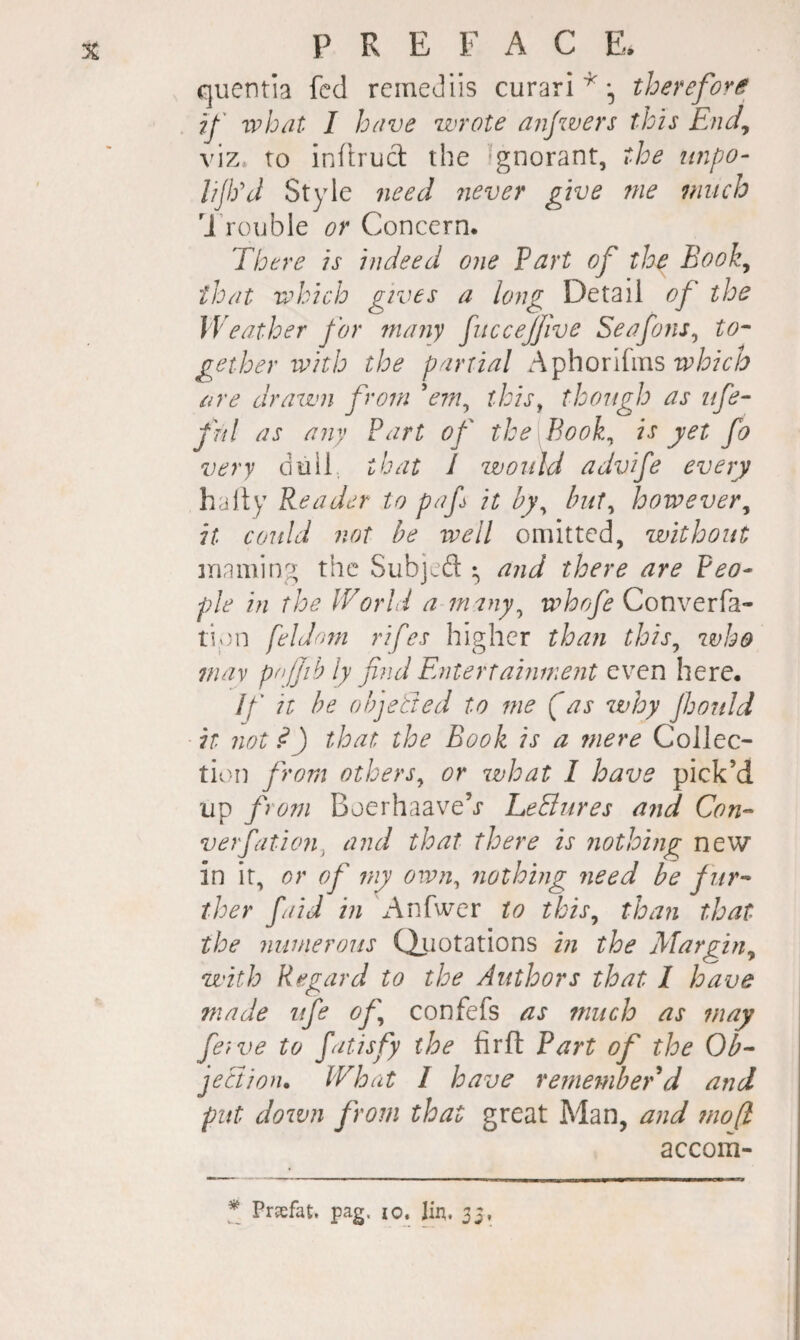 x
PREFACE.
quentia ſed remediis curari *; therefore
if what I have wrote anſwers this End,
viz. to inſtruct the Ignorant, the unpo-
liſh'd Style need never give me much
Trouble or Concern.
There is indeed one Part of the Book,
that which gives a long Detail of the
Weather for many ſucceſſive Seaſons, to-
gether with the partial Aphoriſms which
are drawn from 'em, this, though as uſe-
ful as any Part of the Book, is yet ſo
very dull, that I would adviſe every
haſty Reader to paſs it by, but, however,
it could not be well omitted, without
maming the Subject; and there are Peo-
ple in the World a many, whoſe Converſa-
tion ſeldom riſes higher than this, who
may poſſibly find Entertainment even here.
If it be objected to me (as why ſhould
it not?) that the Book is a mere Collec-
tion from others, or what I have pick'd
up from Boerhaave's Lectures and Con-
verſation, and that there is nothing new
in it, or of my own, nothing need be fur-
ther ſaid in Anſwer to this, than that
the numerous Quotations in the Margin,
with Regard to the Authors that I have
made uſe of, confeſs as much as may
ſerve to ſatisfy the firſt Part of the Ob-
jection. What I have remember'd and
put down from that great Man, and moſt
accom-
* Præfat. pag. 10. lin. 33.